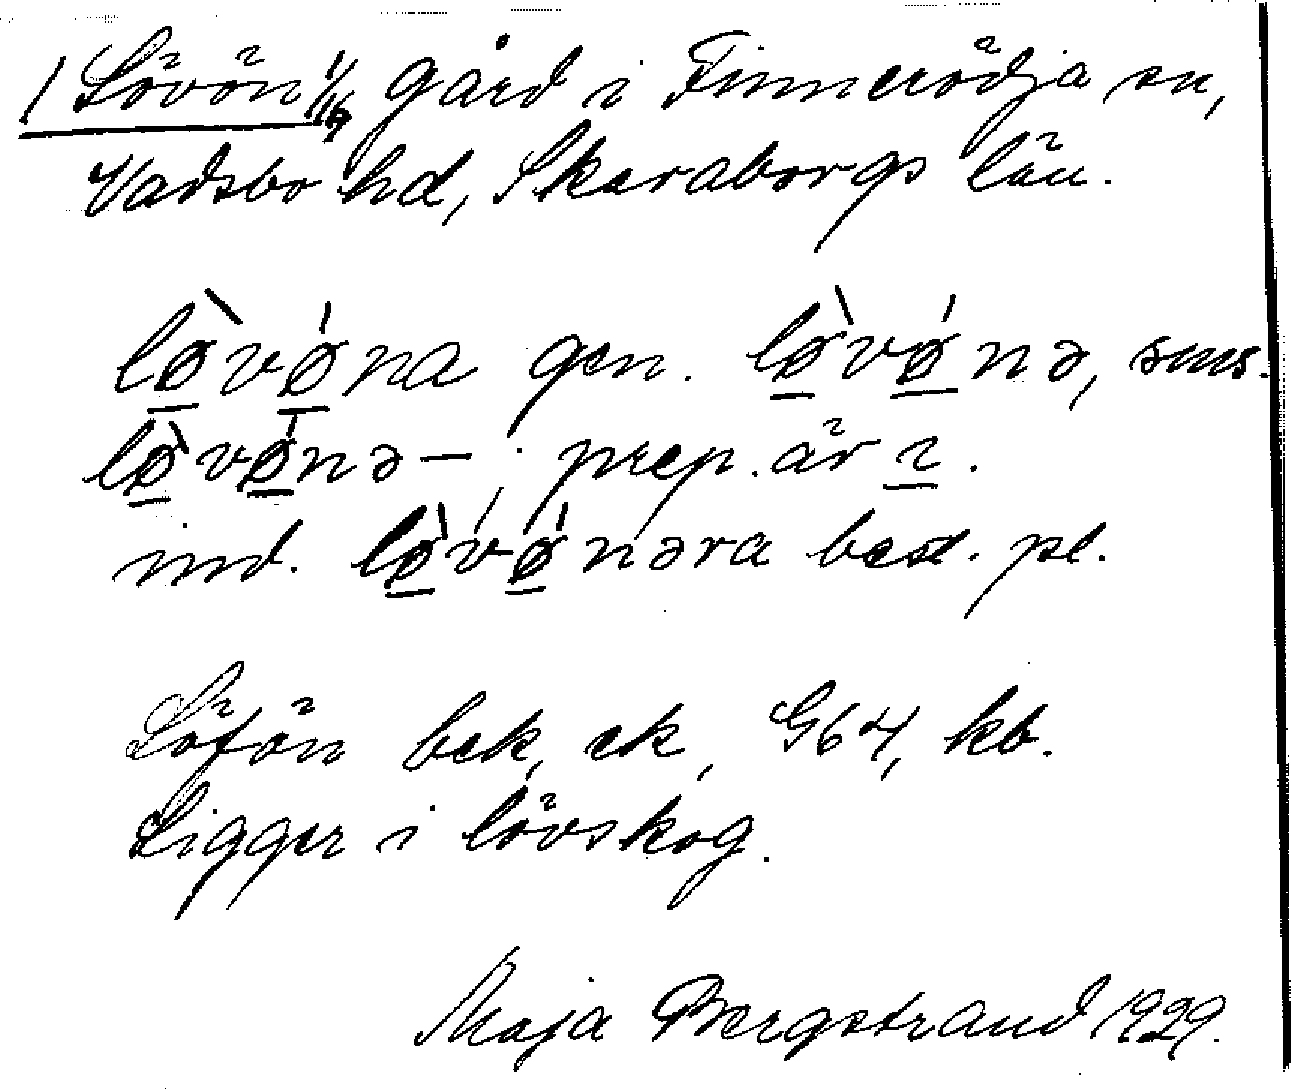 1 Lövön 1/16, gård i Finnerödja sn,
Vadsbo hd, Skaraborgs län.
lø̀vǿna gen. lø̀vǿnə, sms.
lø̀vǿnə— ; prep. är ı.
inv. lø̀vǿnəra best. pl.
Löfön bek, ek, G64, kb.
Ligger i lövskog.
Maja Bergstrand 1929.